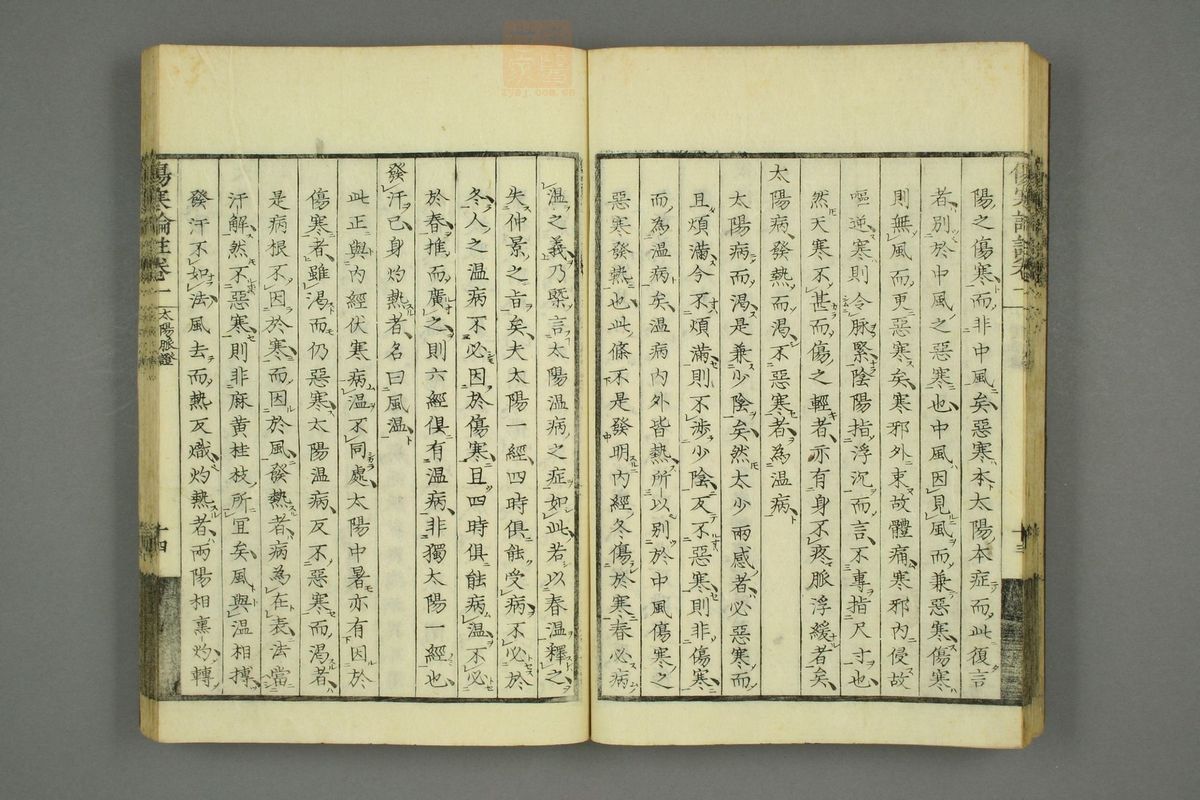 陽之傷寒而非中風矣惡寒本太陽本症而此復言
者別於中風之惡寒也中風因見風而兼惡寒傷寒
則無風而更惡寒矣寒邪外束故體痛寒邪內侵故
嘔逆寒則令脈緊陰陽指浮沉而言不專指尺寸也
然天寒不甚而傷之輕者亦有身不疼脈浮緩者矣
太陽病發熱而渴不惡寒者為温病
太陽病而渴是兼少陰矣然太少兩感者必惡寒而
且煩滿今不煩滿則不渉少陰反不惡寒則非傷寒
而為温病矣温病內外皆熱所以別於中風傷寒之
惡寒發熱也此條不是發明內經冬傷於寒春必病
温之義乃槩言太陽温病之症如此若以春温釋之
失仲景之旨矣夫太陽一經四時俱能受病不必於
冬人之温病不必因於傷寒且四時俱能病温不必
於春推而廣之則六經俱有温病非獨太陽一經也
發汗已身灼熱者名曰風温
此正與內經伏寒病温不同處太陽中暑亦有因於
傷寒者雖渴而仍惡寒太陽温病反不惡寒而渴者
是病根不因於寒而因於風發熱者病為在表法當
汗解然不惡寒則非麻黃桂枝所宜矣風與温相摶
發汗不如法風去而熱反熾灼熱者兩陽相熏灼轉
傷寒論註卷一
太陽脈證
十四